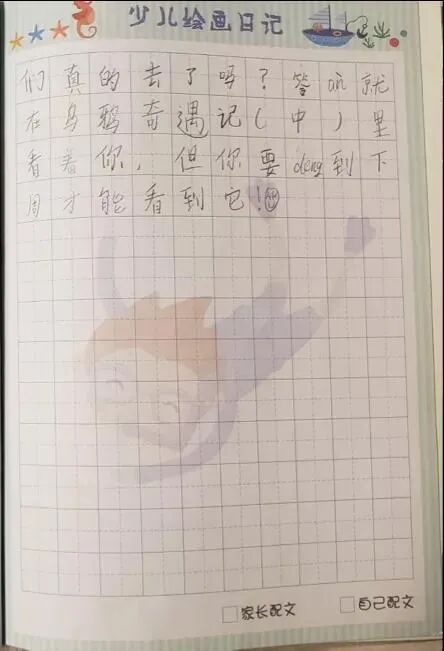 少儿绘画日记
们真的去了吗？答àn就
在乌鸦奇遇记（中）里
看着你，但你要deng到下
周才能看到它！
家长配文
自己配文